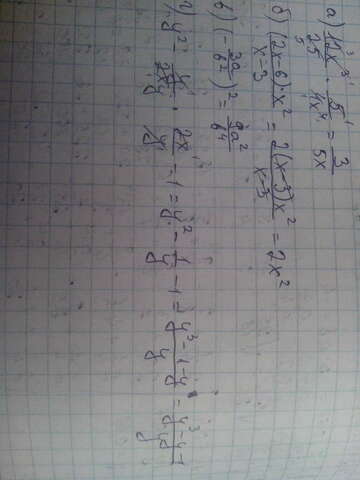 а) 12x/25 · 5/4x⁴ = 3/5x
б) (2x-6)·x²/x-3 = 2(x-3)x²/x-3 = 2x²
в) (-3a/b²)² = 9a²/b⁴
г) y² - y/2xy · 2x/y - 1 = y² - 1/y - 1 = y³-1-y/y = y³-y-1/y